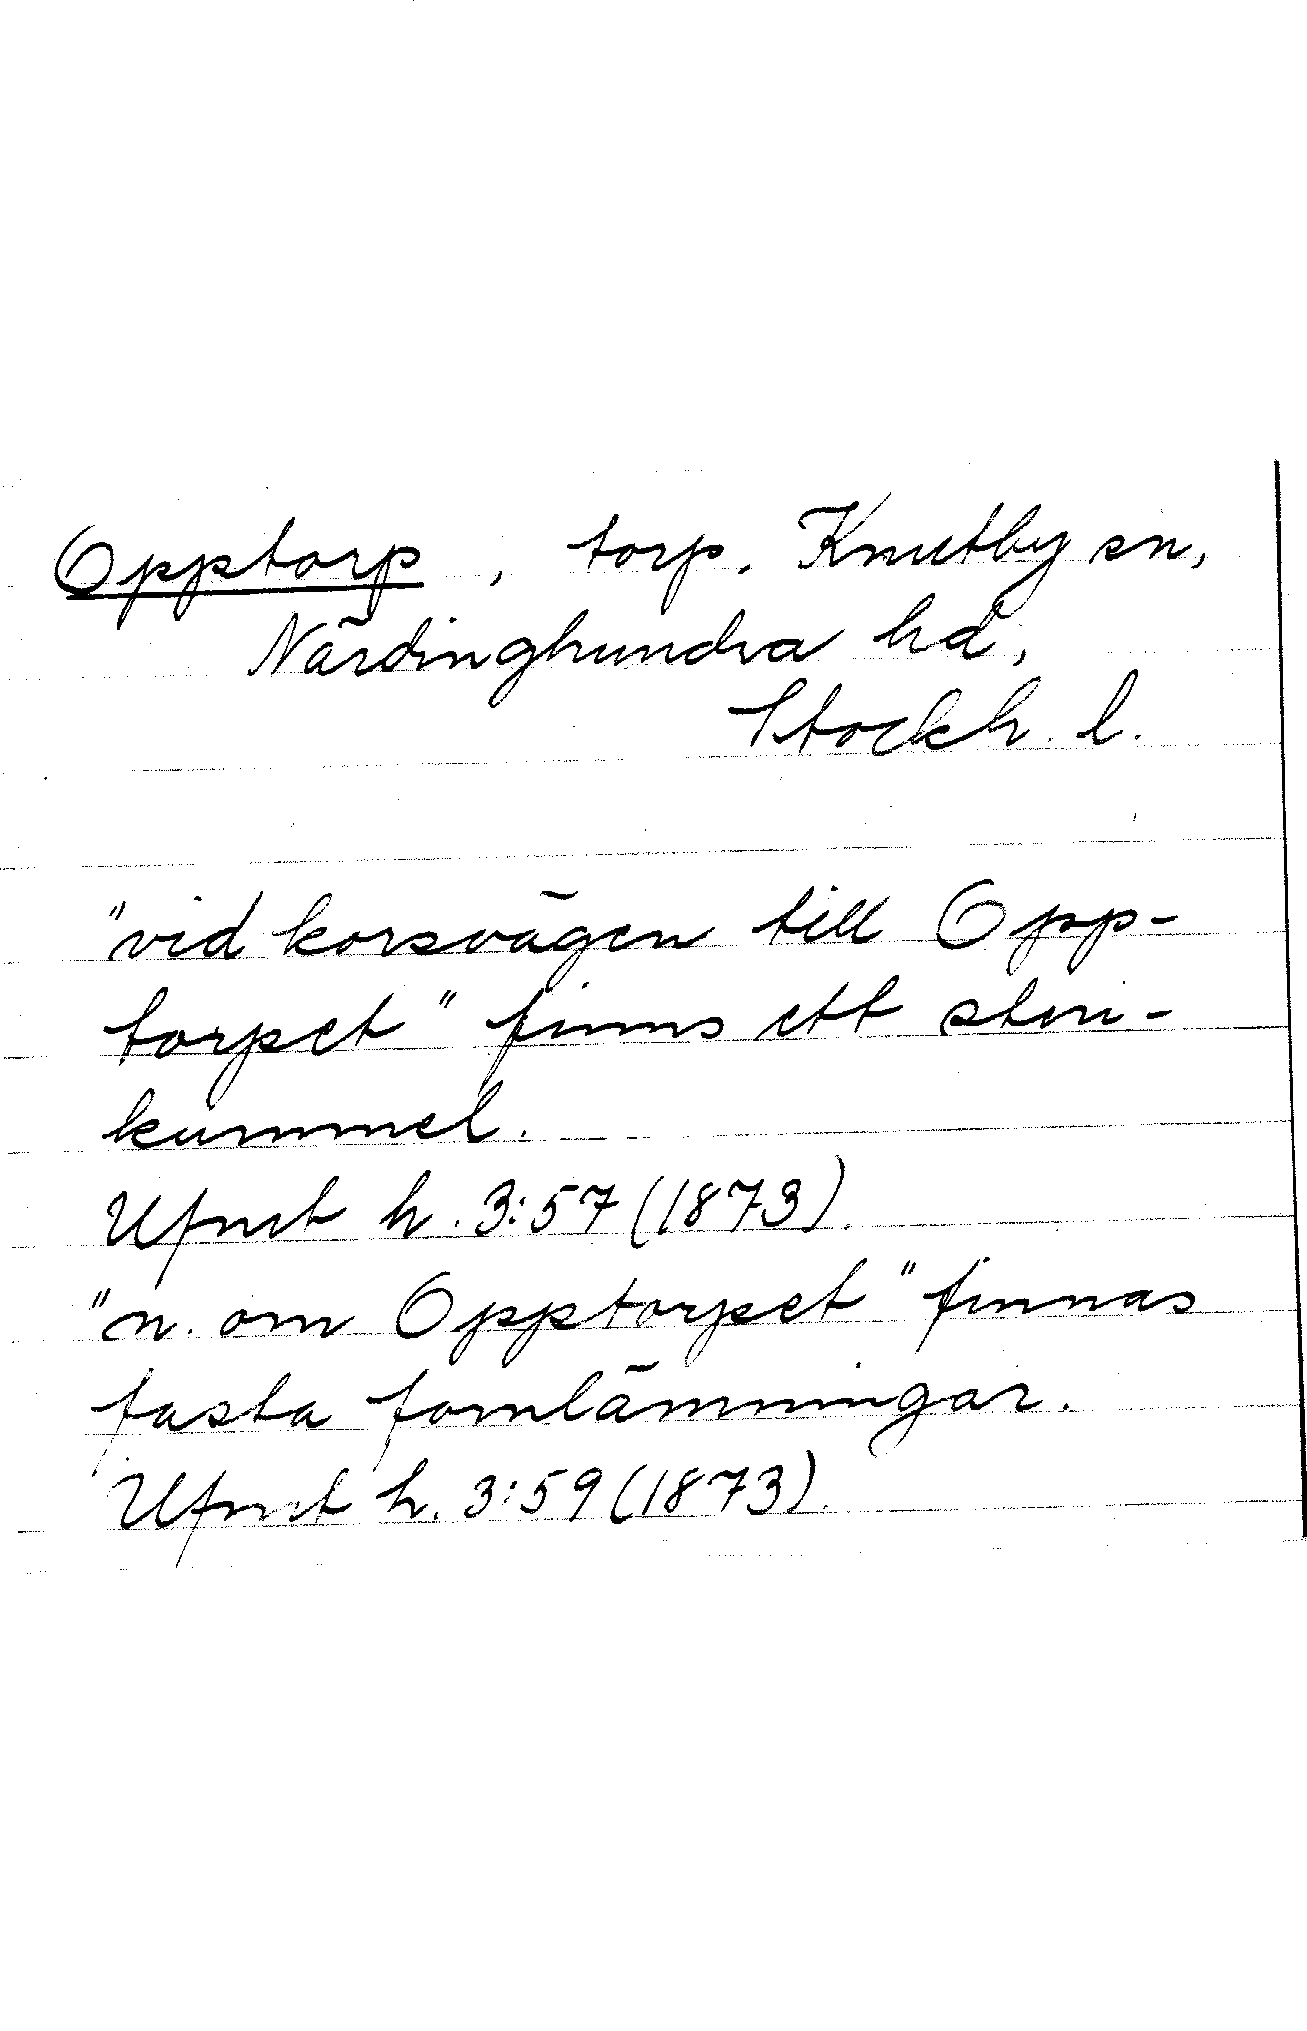 Opptorp, torp. Knutby sn,
Närdinghundra hd,
Stockh. l.
"vid korsvägen till Opp-
torpet" finns ett sten-
kummel.
Ufmt h. 3:57 (1873).
"n. om Opptorpet" finnas
fasta fornlämningar.
Ufmt h. 3:59 (1873).